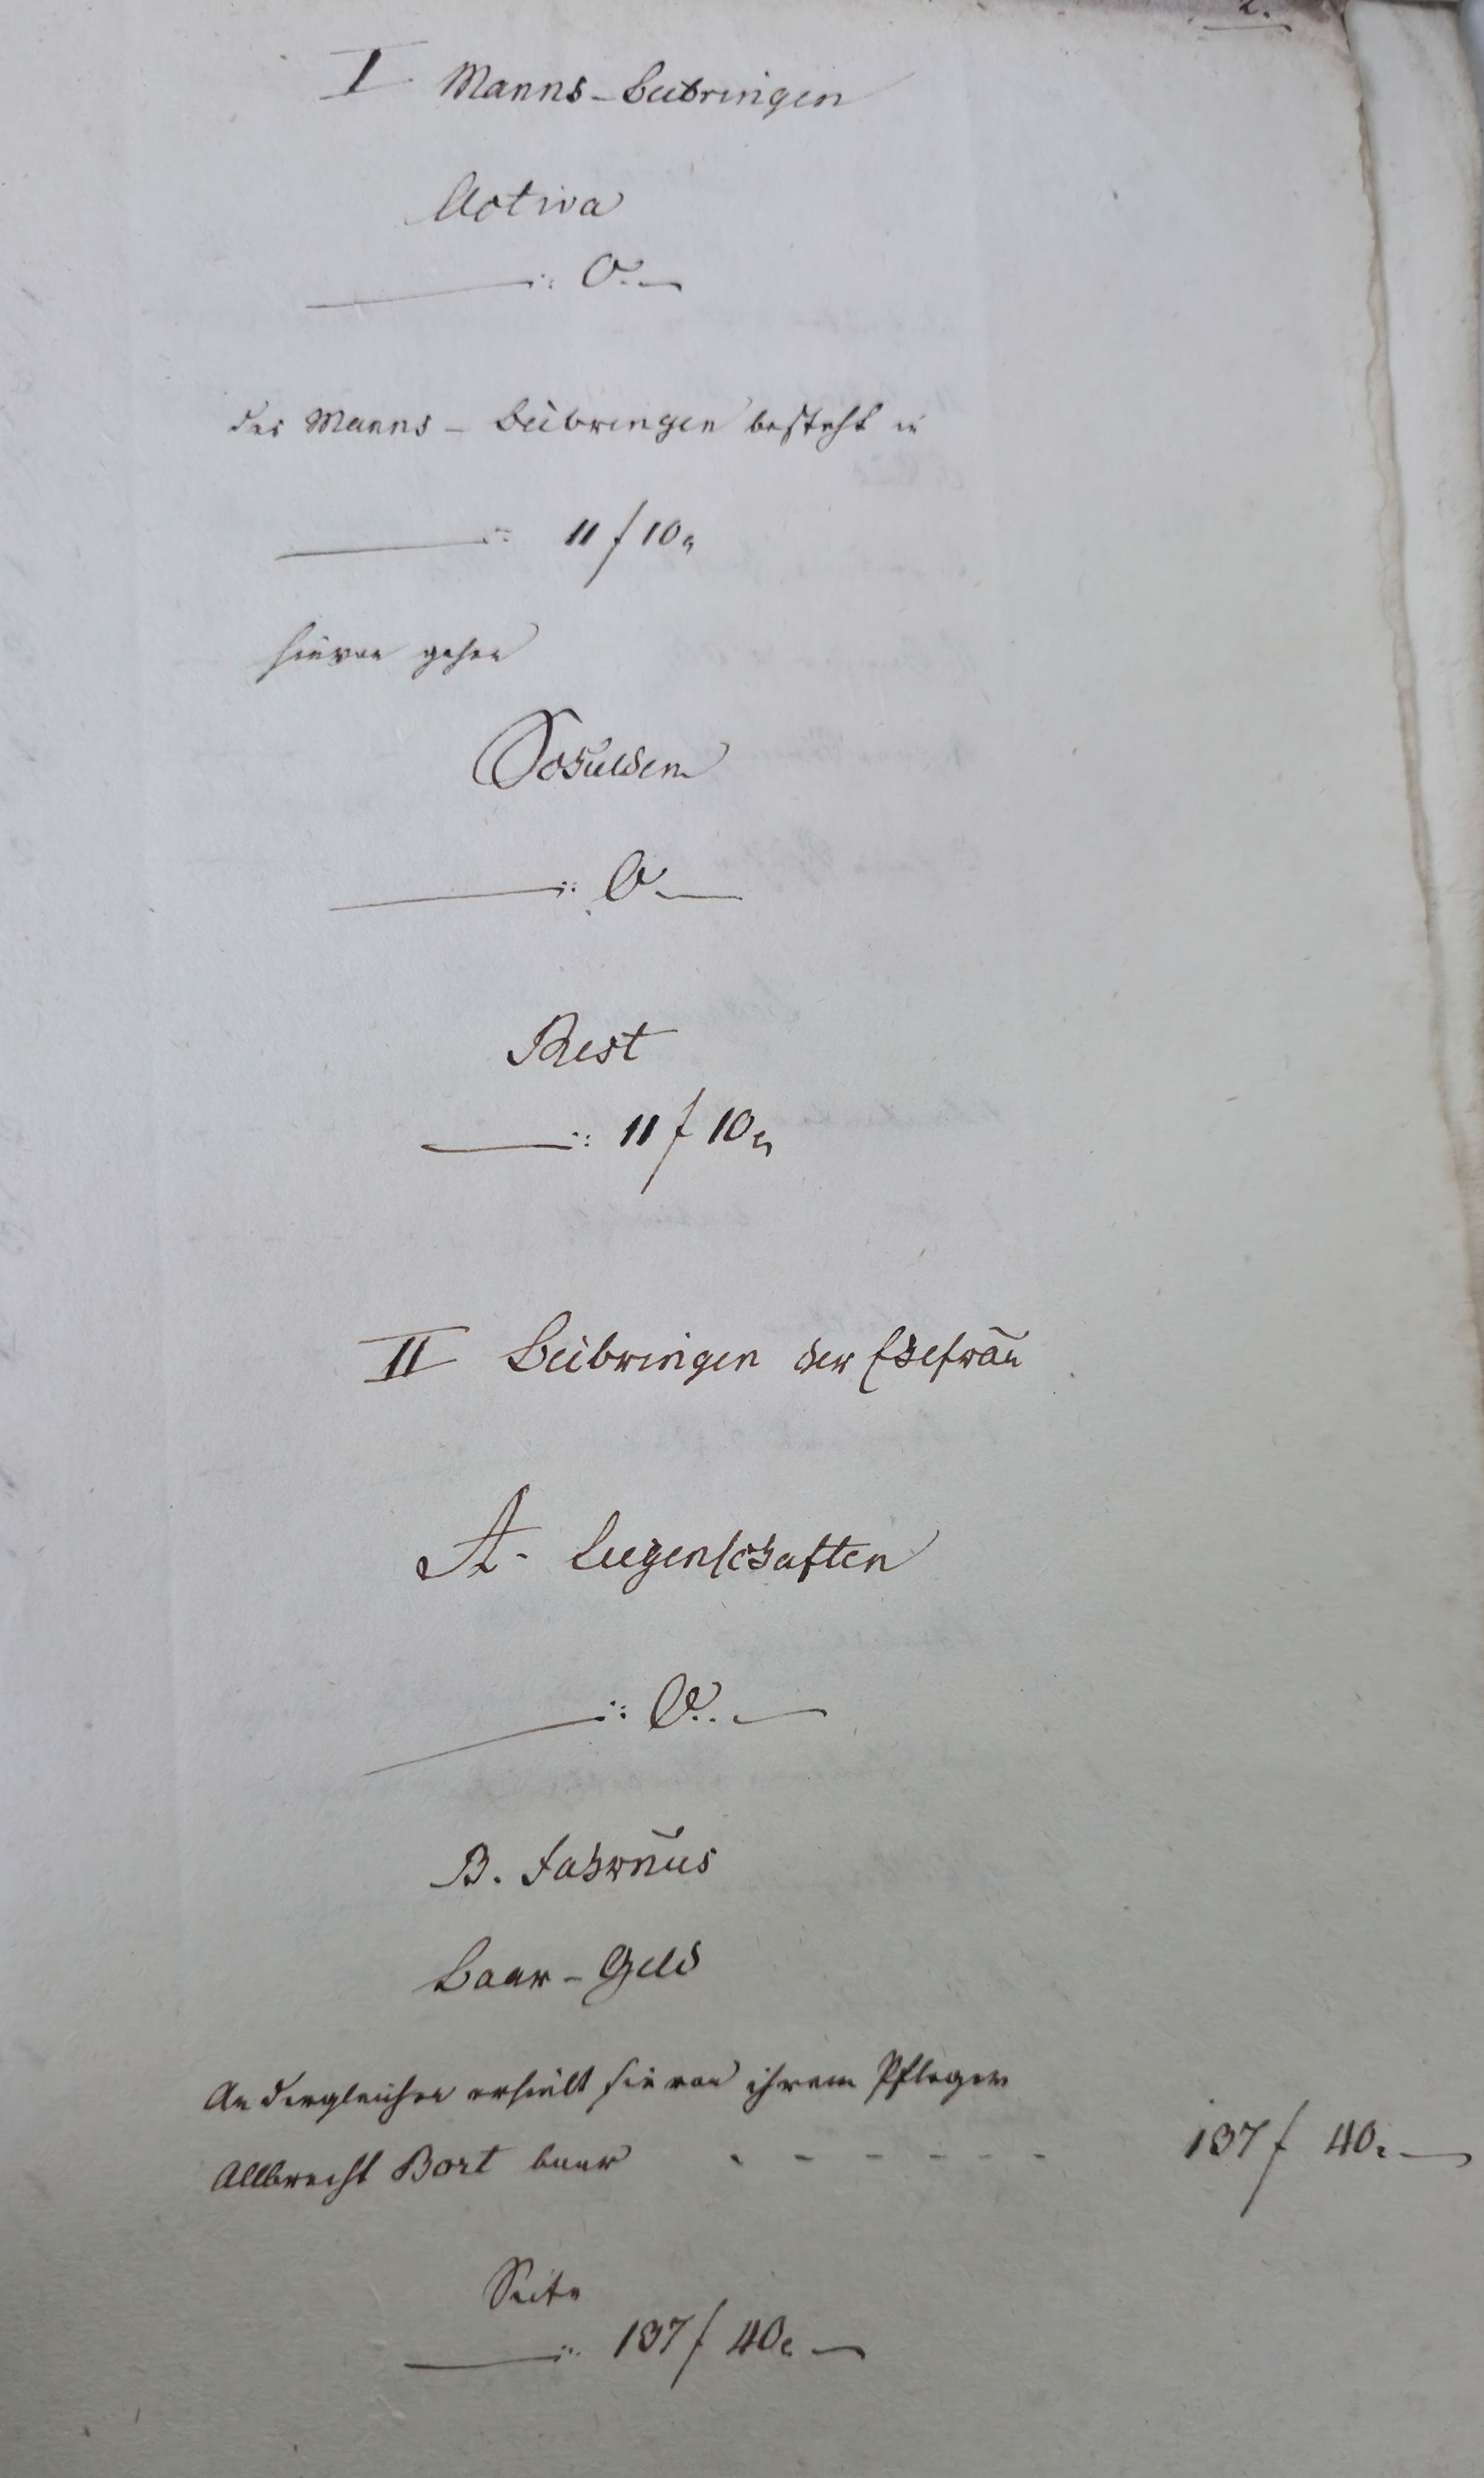 2.
I Manns-Beibringen
Activa
0.
Das Manns-Beibringen besteht in
11 f 10 x
hievon gehen
Schulden
0.
Rest
11 f 10 x
II Beibringen der Ehefrau
A. Liegenschaften
0.
B. Fahrnus
Baar-Geld
An dergleichen erhielt sie von ihrem Pfleger
Allbrecht Bort baar - - - - - - 137 f 40 x
Seite
137 f 40 x